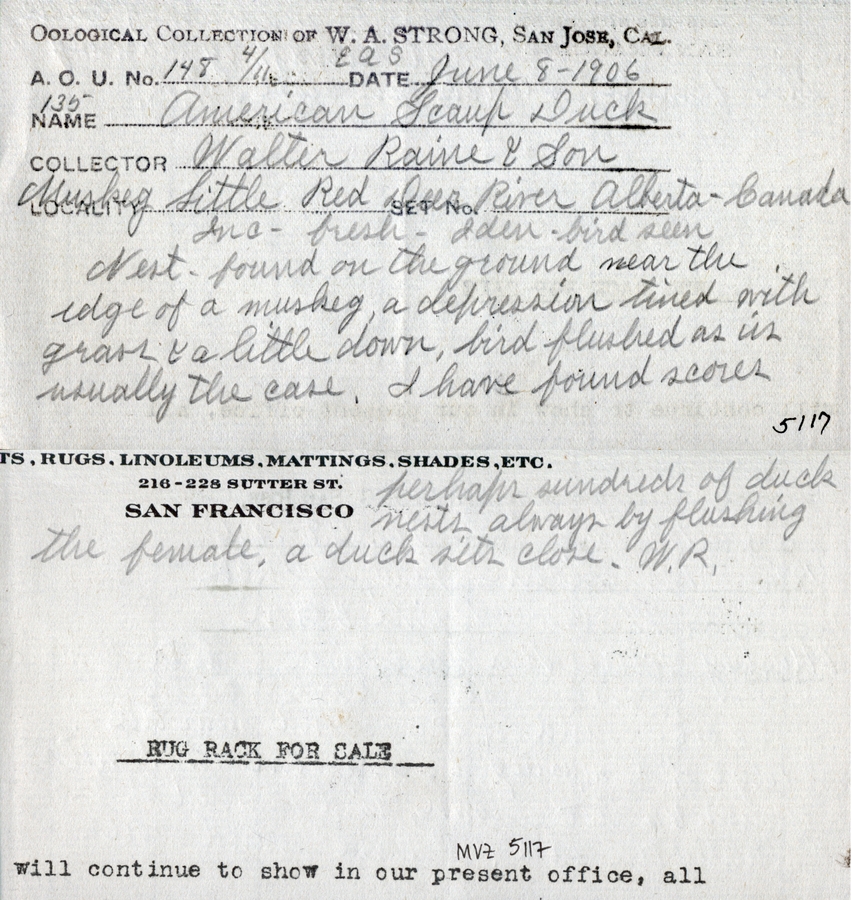 OOLOGICAL COLLECTION OF W. A. STRONG, SAN JOSE, CAL.
A. O. U. No. 148 4/11 E a s DATE June 8-1906
135
NAME American Scaup Duck
COLLECTOR Walter Raine & Son
LOCALITY Muskeg Little Red Deer River Alberta-Canada SET No.
Inc- fresh- Iden-bird seen
Nest- found on the ground near the
edge of a muskeg, a depression lined with
grass & a little down, bird flushed as is
usually the case. I have found scores
5117
TS, RUGS, LINOLEUMS, MATTINGS, SHADES, ETC.
216-228 SUTTER ST.
SAN FRANCISCO
perhaps hundreds of duck
nests always by flushing
the female, a duck sets close. W.R.
RUG RACK FOR SALE
MVZ 5117
will continue to show in our present office, all